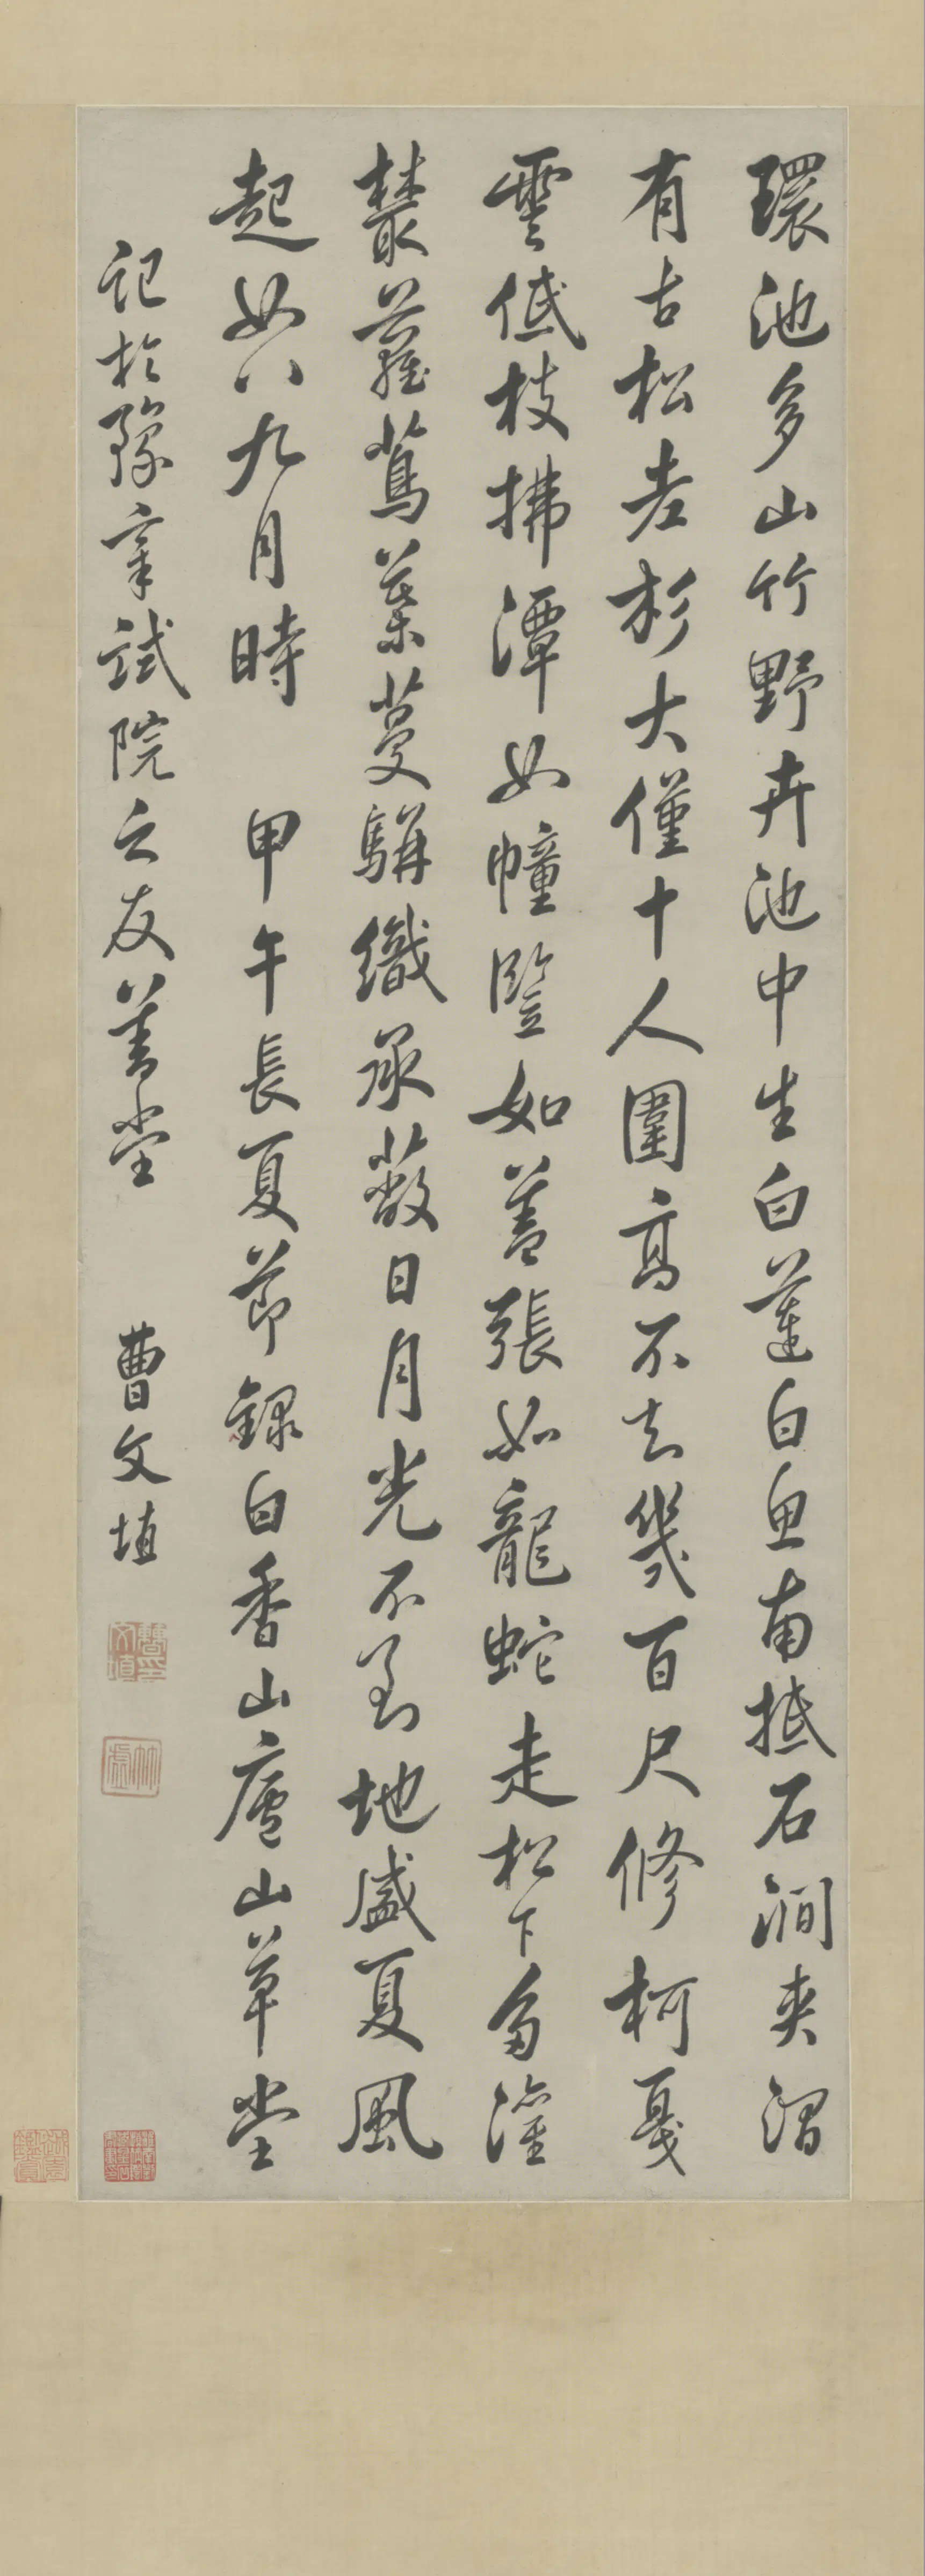 環池多山竹野卉池中生白蓮白魚南抵石澗夾澗
有古松老杉大僅十人圍高不知幾百尺修柯戛
雲低枝拂潭如幢豎如蓋張如龍蛇走松下多灌
叢蘿蔦葉蔓駢織承蔽日月光不到地盛夏風
起如八九月時 甲午長夏節錄白香山廬山草堂
記於豫章試院之友善堂 曹文埴
曹文埴印
竹虛